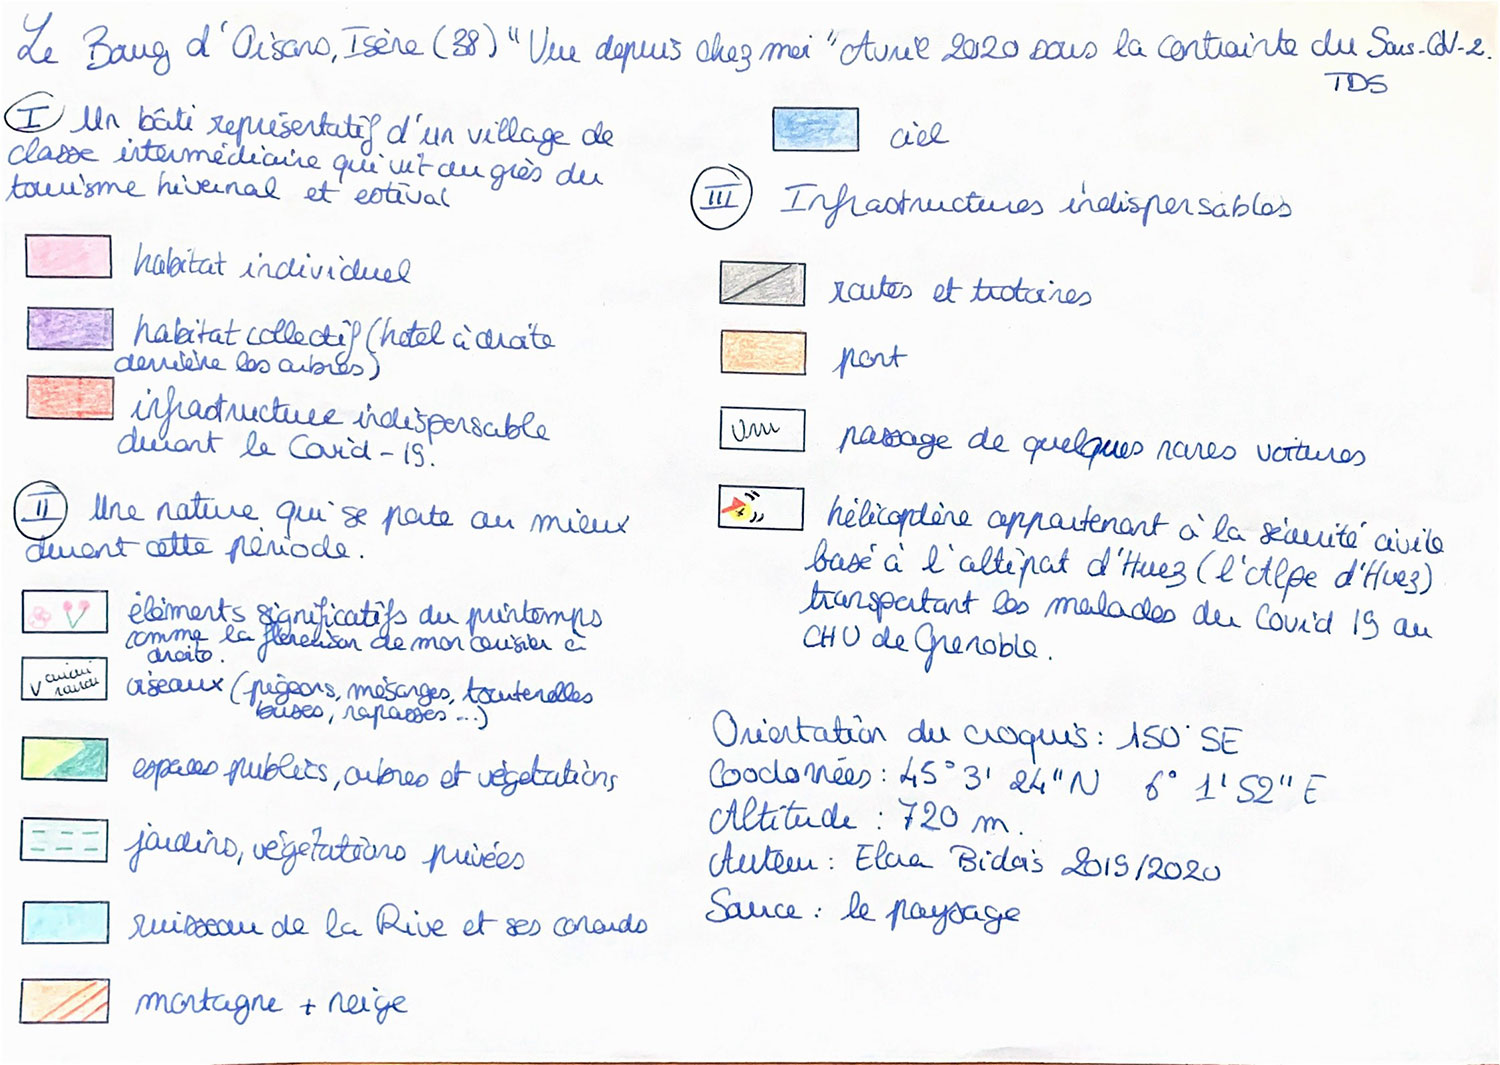 Le Bourg d'Oisans, Isère (38) "Vue depuis chez moi" Avril 2020 sous la contrainte du Sars-CoV-2.
TDS
I Un bâti représentatif d'un village de
classe intermédiaire qui vit au grès du
tourisme hivernal et estival
habitat individuel
habitat collectif (hotel à droite
derrière les arbres)
infrastructure indispensable
durant le Covid-19.
II Une nature qui se porte au mieux
durant cette période.
éléments significatifs du printemps
comme la floraison de mon cerisier à
droite.
cuicui
oiseaux (pigeons, mésanges, tourterelles
buses, rapasses ...)
espaces publics, arbres et végétations
jardins, végétations privées
ruisseau de la Rive et ses canards
montagne + neige
ciel
III Infrastructures indispensables
routes et trotoires
pont
Vrm
passage de quelques rares voitures
hélicoptère appartenant à la sécurité civile
basé à l'altiport d'Huez (l'Alpe d'Huez)
transportant les malades du Covid 19 au
CHU de Grenoble.
Orientation du croquis : 150° SE
Coodonnées : 45° 3' 24" N 6° 1' 52" E
Altitude : 720 m.
Auteur : Elsa Bidois 2019/2020
Source : le paysage